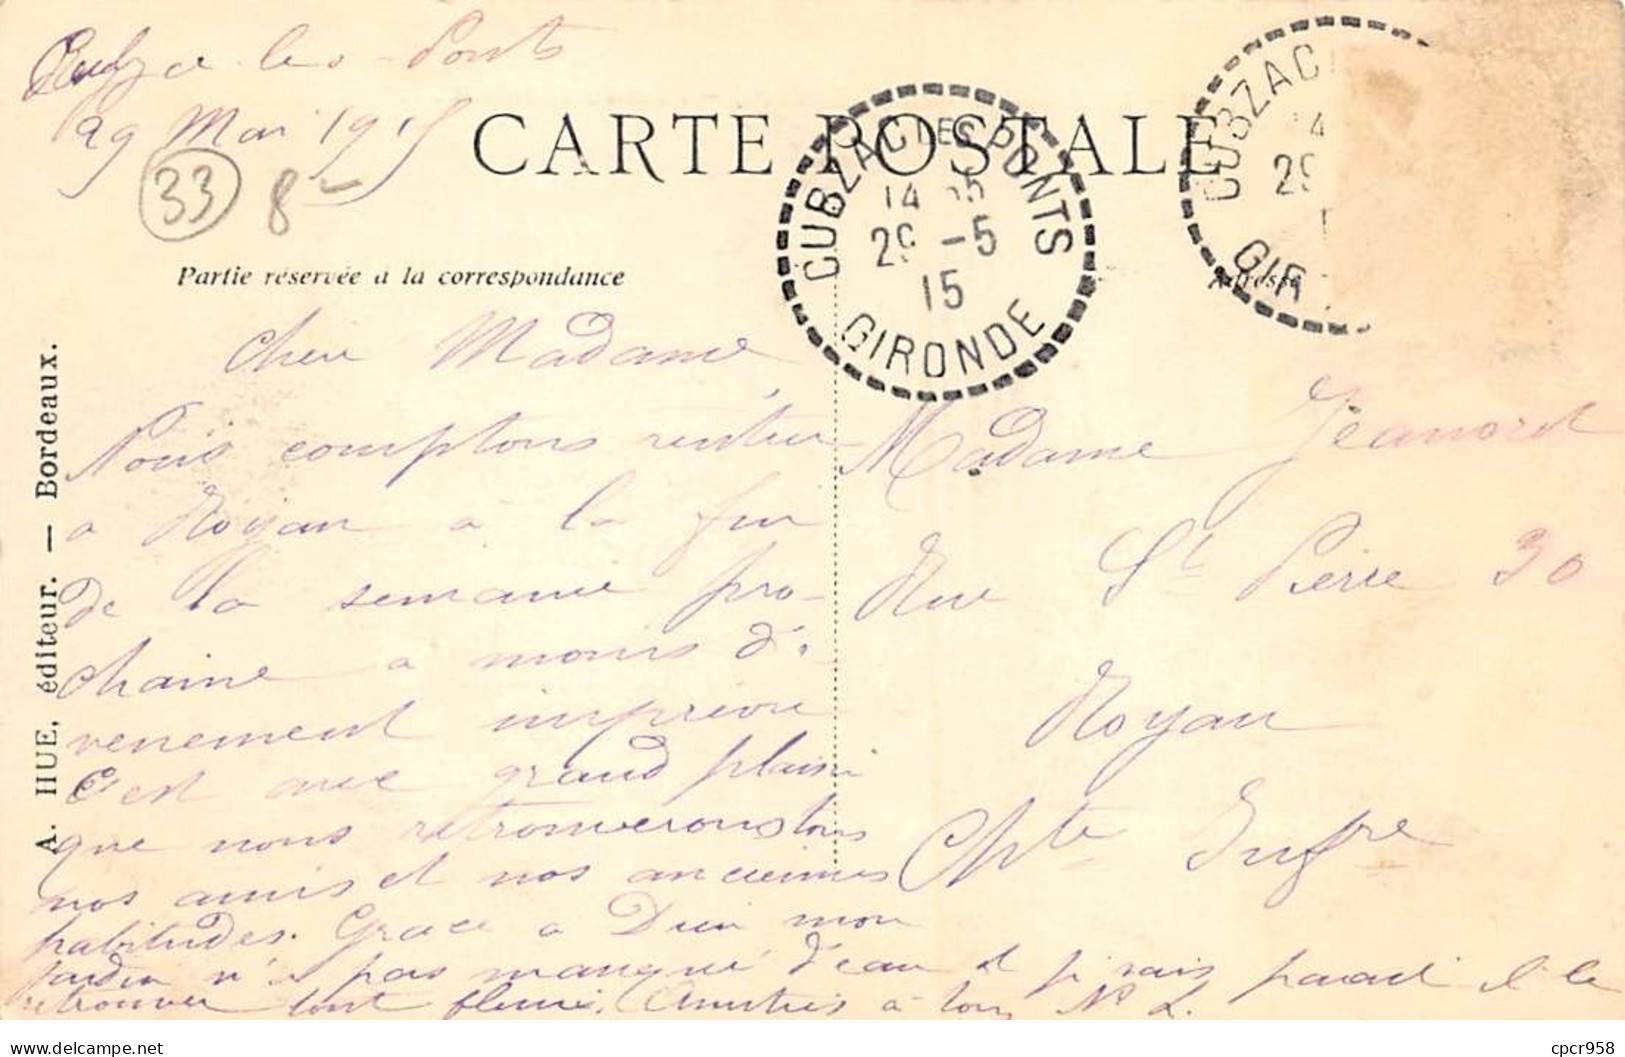 Cubzac les Ponts
29 Mai 1915
33
8
CARTE POSTALE
CUBZAC LES PONTS
14 35
29 -5
15
GIRONDE
CUBZAC
14
29
1
GIR
Partie réservée à la correspondance
Adresse
A. HUE, éditeur. — Bordeaux.
Chere Madame
Nous comptons rentrer
a Royan a la fin
de la semaine pro-
chaine a moins d'é-
venement imprévu
C'est avec grand plaisir
que nous retrouverons tous
nos amis et nos anciennes
habitudes. Grace a Dieu mon
jardin n'a pas manqué d'eau et je vais parait il le
retrouver tout fleuri. Amitiés à tous N. L.
Madame Jeanord
Rue St Pierre 30
Royan
Chte Infre
cpcr958